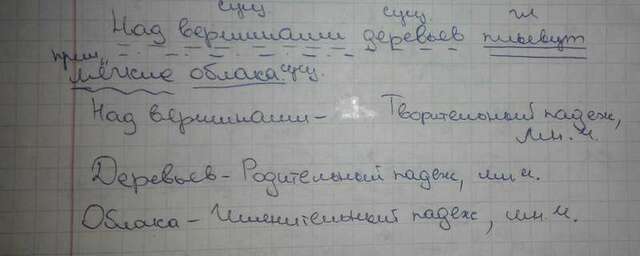 сущ сущ. гл
Над вершинами деревьев плывут
прил.
мягкие облака сущ.
Над вершинами – Творительный падеж,
мн. ч.
Деревьев – Родительный падеж, мн. ч.
Облака – Именительный падеж, мн. ч.